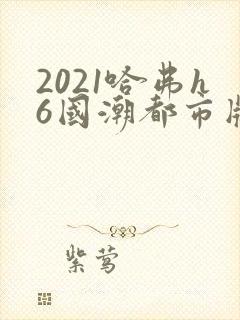 2021哈弗h
6國潮都市版
紫莺